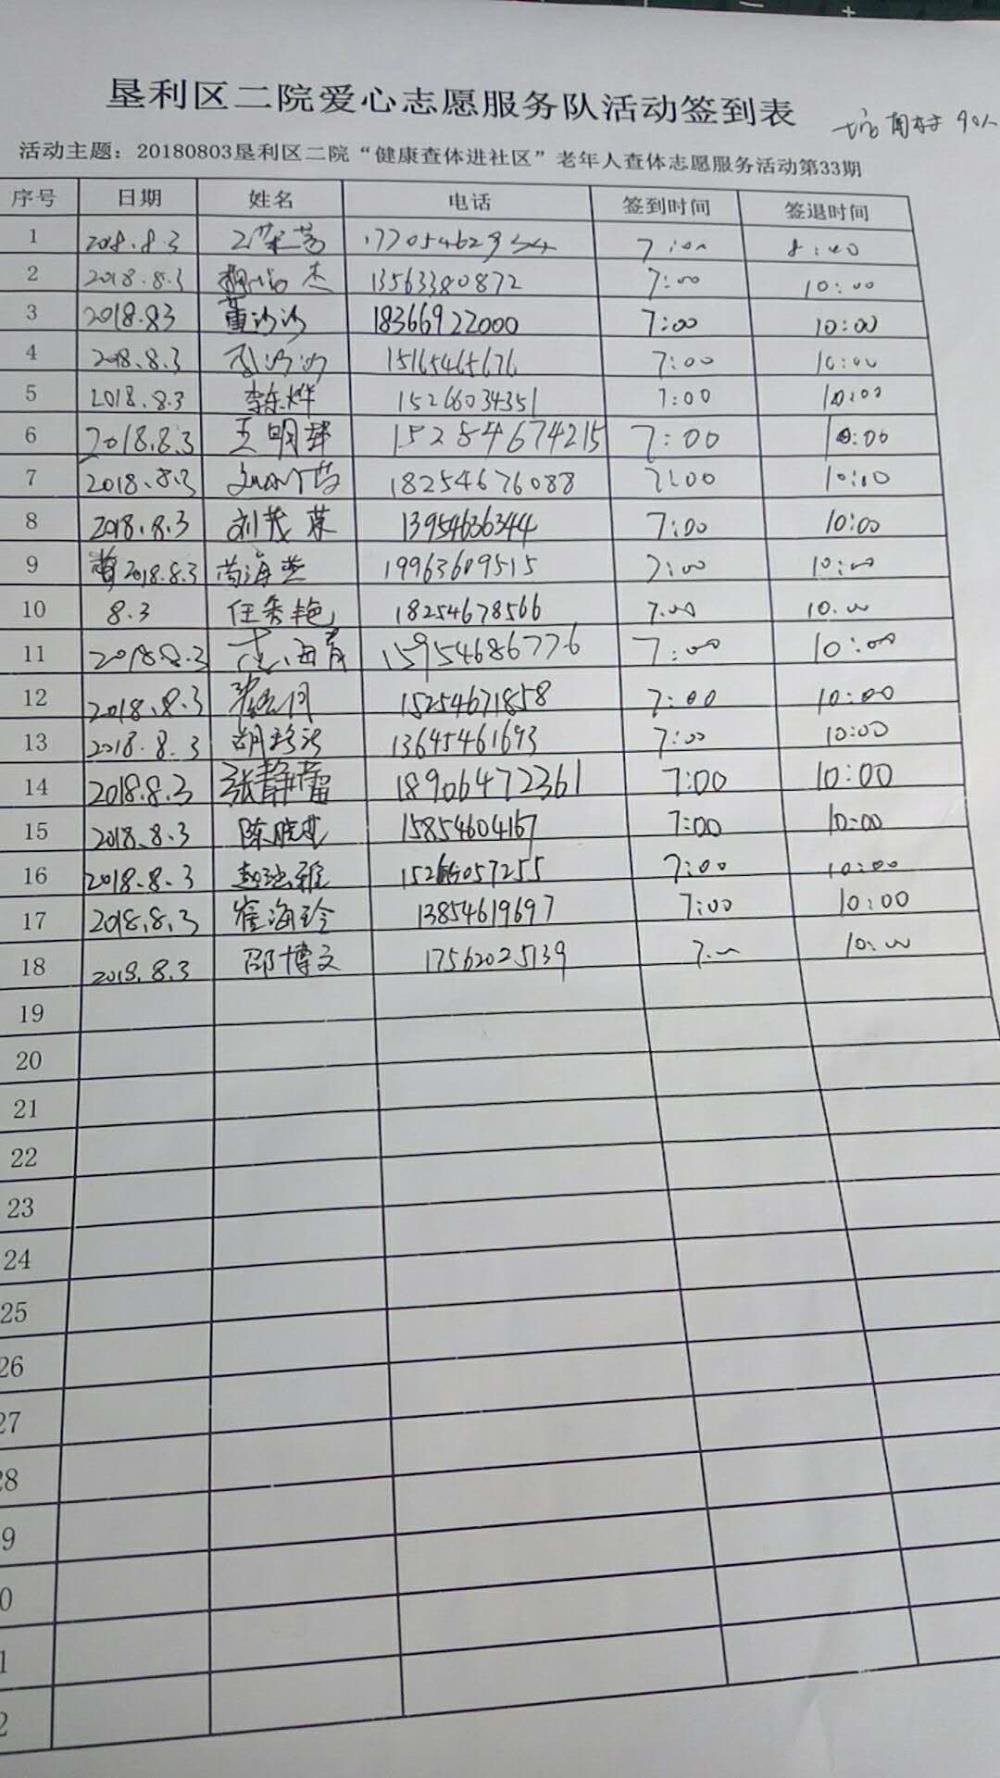 垦利区二院爱心志愿服务队活动签到表
90人
活动主题：20180803垦利区二院“健康查体进社区”老年人查体志愿服务活动第33期
序号 日期 姓名 电话 签到时间 签退时间
1 2018.8.3 7:00 8:40
2 2018.8.3 13563380872 7:00 10:00
3 2018.83 董沙沙 18366922000 7:00 10:00
4 2018.8.3 15165465676 7:00 10:00
5 2018.8.3 李东烨 15266034351 7:00 10:00
6 2018.8.3 王明 15284674215 7:00 10:00
7 2018.8.3 18254676088 7:00 10:00
8 2018.8.3 刘茂荣 13954636344 7:00 10:00
9 2018.8.3 尚海燕 19963609515 7:00 10:00
10 8.3 任秀艳 18254678566 7.00 10.00
11 2018.8.3 15954686776 7:00 10:00
12 2018.8.3 15254671858 7:00 10:00
13 2018.8.3 13645461693 7:00 10:00
14 2018.8.3 张静蕾 18906472361 7:00 10:00
15 2018.8.3 陈晓 15854604167 7:00 10:00
16 2018.8.3 7:00 10:00
17 2018.8.3 崔海玲 13854619697 7:00 10:00
18 2018.8.3 邵博文 17562025139 7.00 10.00
19
20
21
22
23
24
25
26
27
28
9
0
1
2